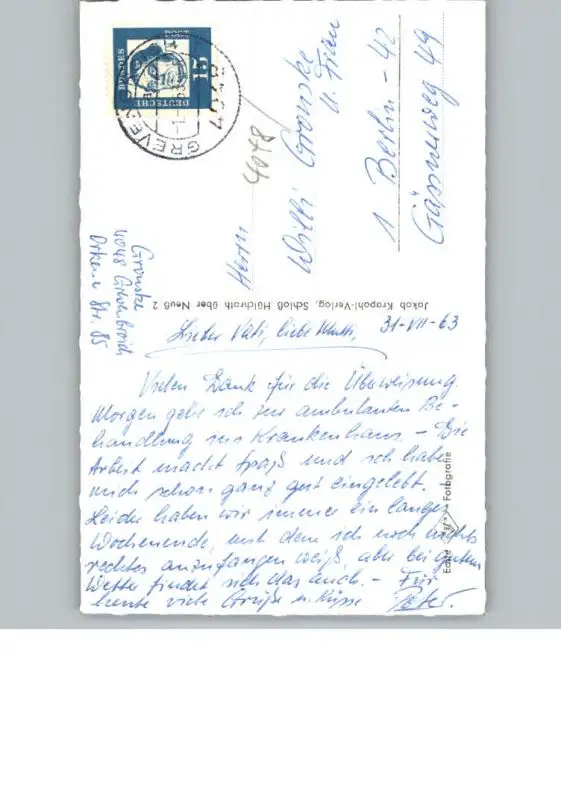 DEUTSCHE
BUNDES
POST
15
GREVE
4048
4048
Herrn
Willi Gronske
u. Frau
1 Berlin - 42
49
Gronske
4048 Grevenbroich
Str. 85
Jakob Krapohl-Verlag, Schloß Hülchrath über Neuß 2
Echte Fotografie
31-VII-63
Lieber Vati, liebe Mutti,
Vielen Dank für die Überweisung.
Morgen gehe ich zur ambulanten Be-
handlung ins Krankenhaus. - Die
Arbeit macht Spaß und ich habe
mich schon ganz gut eingelebt.
Leider haben wir immer ein langes
Wochenende, mit dem ich noch nichts
rechtes anzufangen weiß, aber bei gutem
Wetter findet sich das auch. - Für
heute viele Grüße u. Küsse Peter.